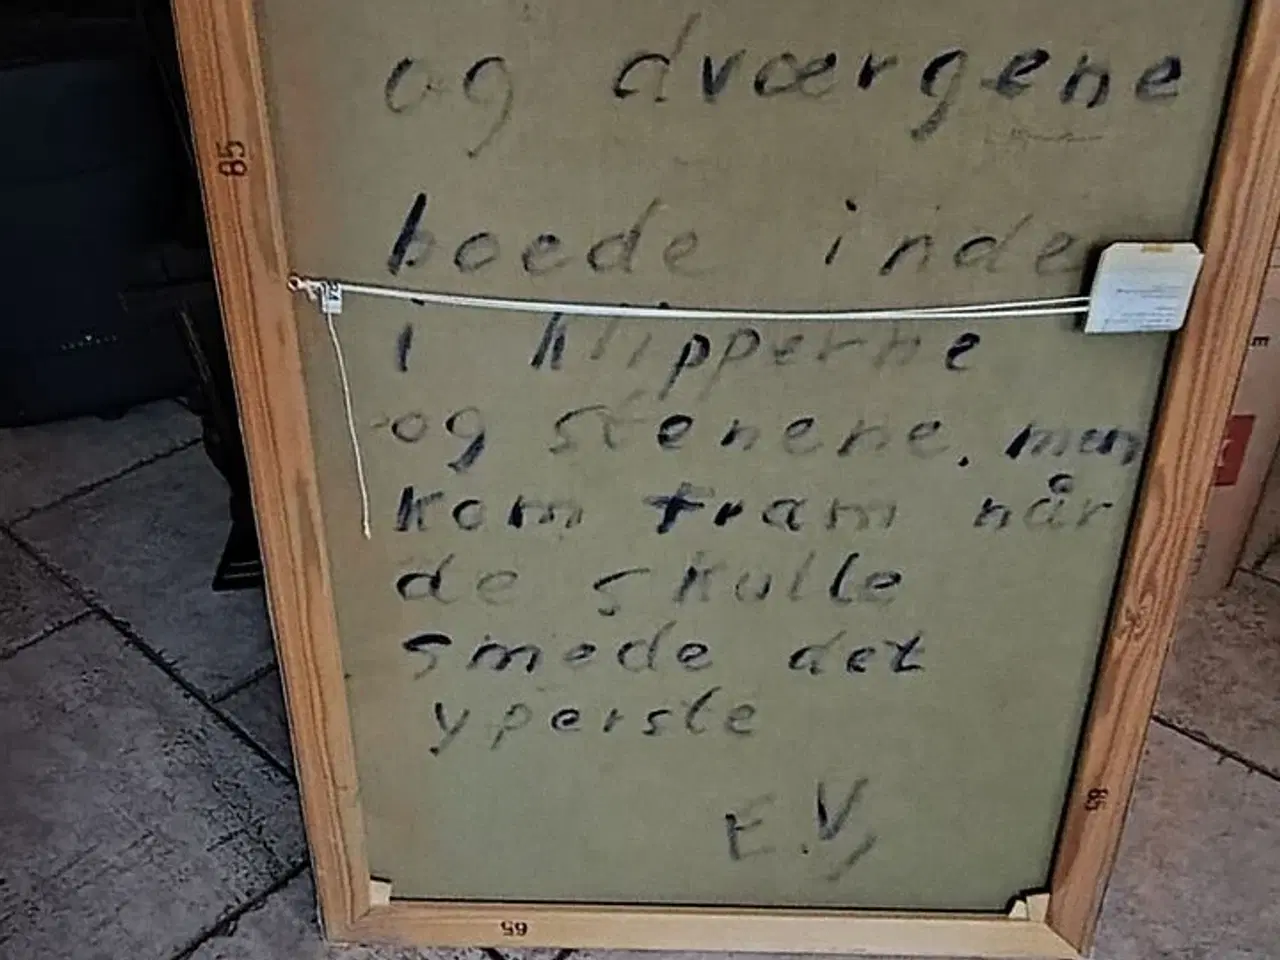 og dværgene
boede inde
i klipperne
og stenene, men
kom fram når
de skulle
smede det
yperste
E.V.
85
85
65